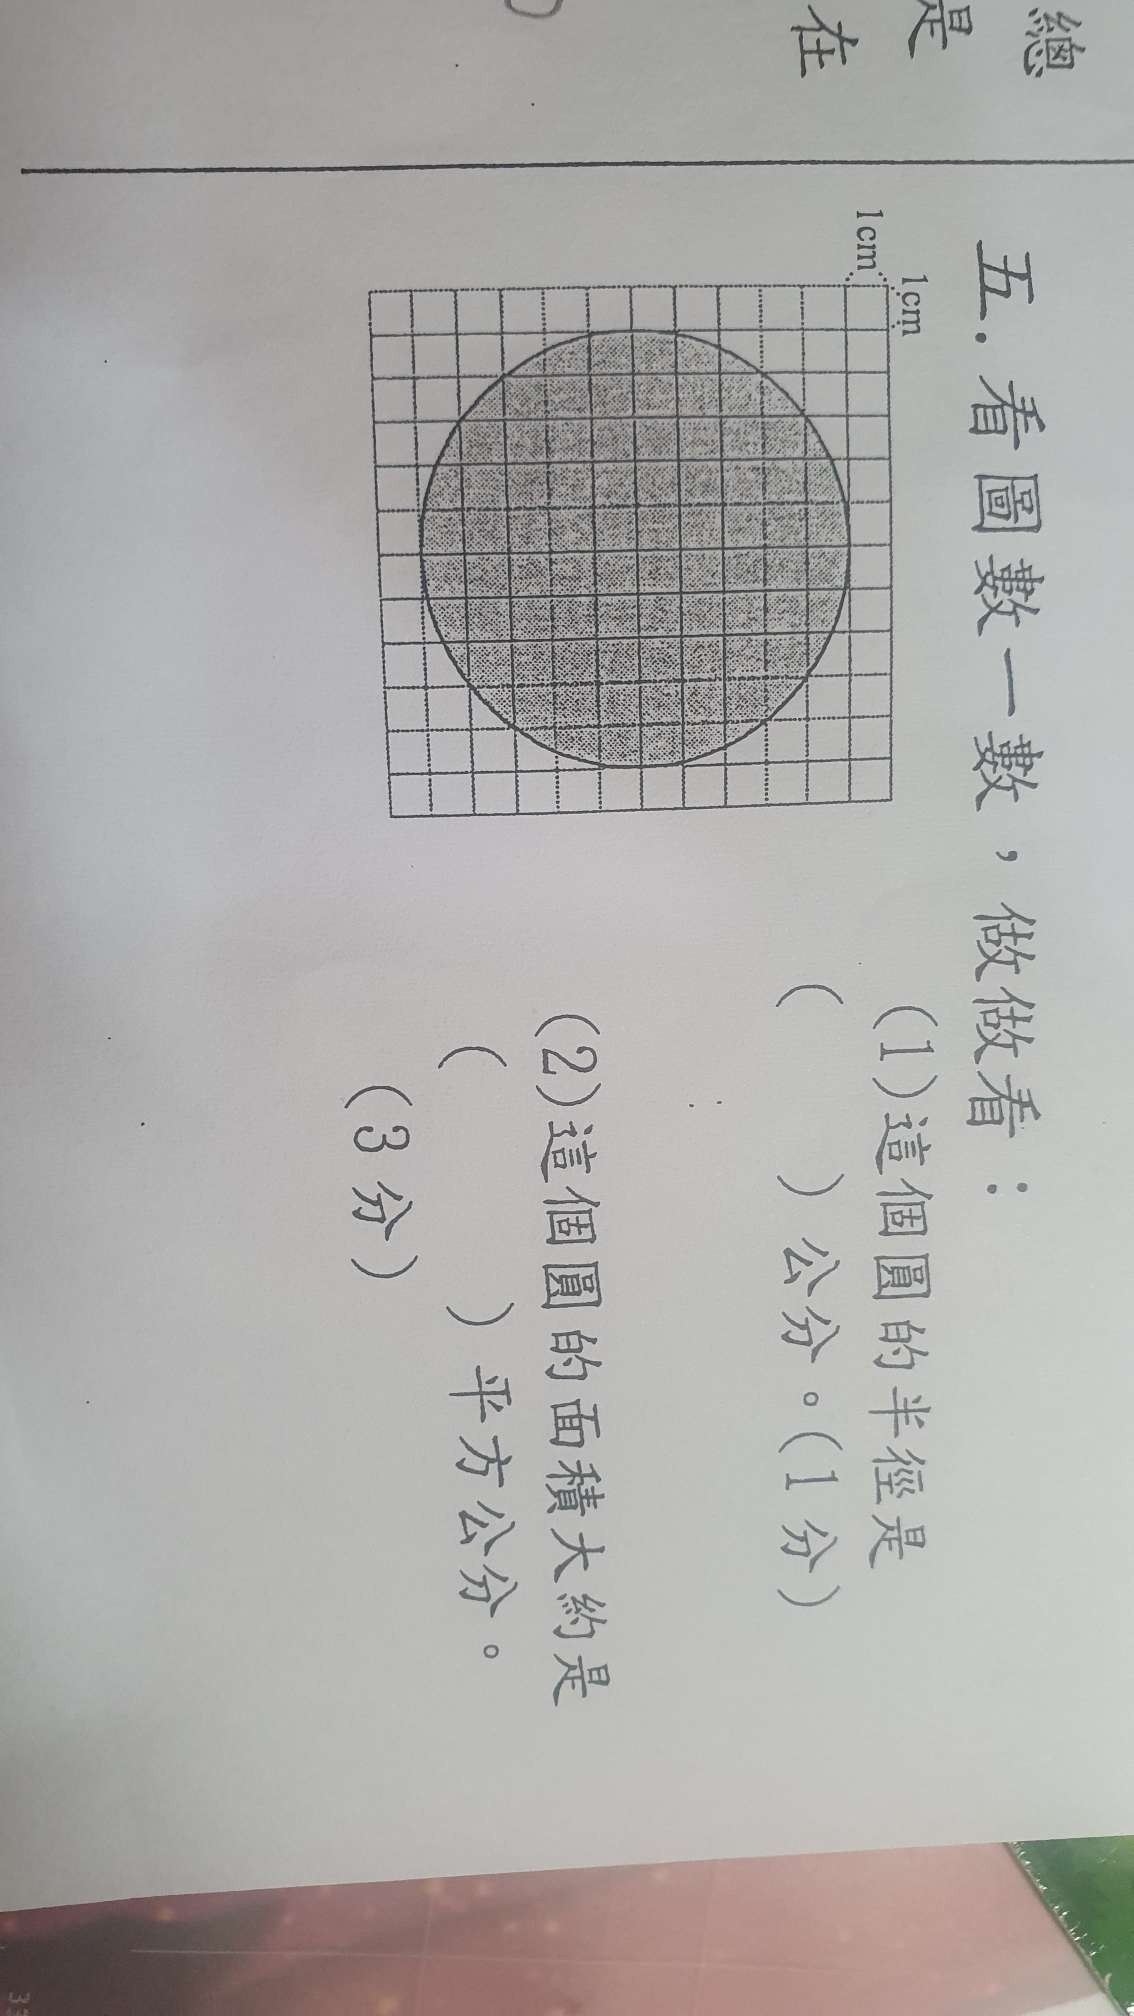 總
是
在
五.看圖數一數，做做看：
1cm
1cm
(1)這個圓的半徑是
(　　)公分。(1分)
(2)這個圓的面積大約是
(　　)平方公分。
(3分)